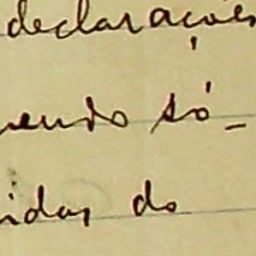 declarações
endo só-
idas do